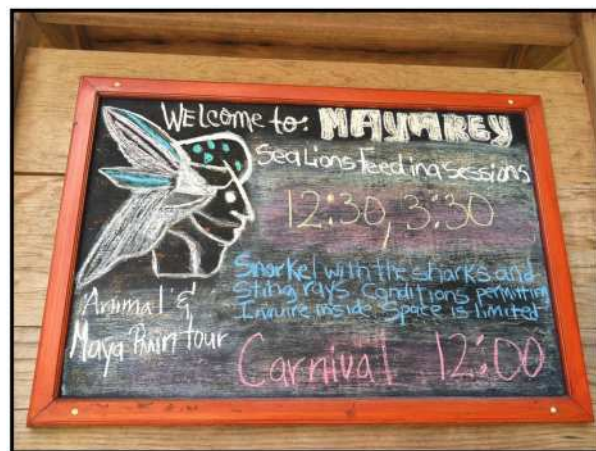 WELcome to: MAYA KEY
Sea Lions Feeding Sessions
12:30, 3:30
Snorkel with the sharks and
Sting rays. Conditions permitting
Inquire inside Space is limited
Animal &
Maya Ruin tour
Carnival 12:00